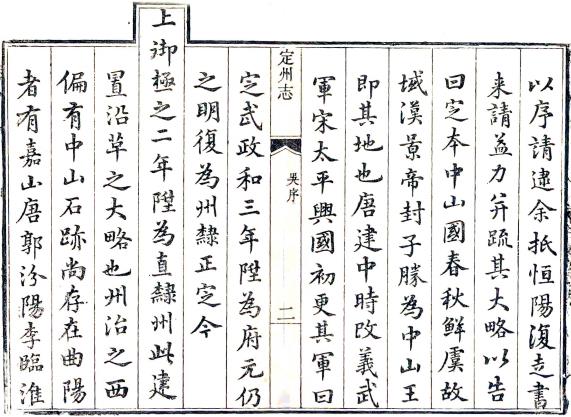 以序請逮余抵恒陽復走書
来請益力并疏其大略以告
曰定本中山國春秋鮮虞故
域漢景帝封子勝為中山王
即其地也唐建中時改義武
軍宋太平興國初更其軍曰
定州志
吳序
二
定武政和三年陞為府元仍
之明復為州隸正定今
上御極之二年陞為直隸州此建
置沿革之大略也州治之西
偏有中山石跡尚存在曲陽
者有嘉山唐郭汾陽李臨淮